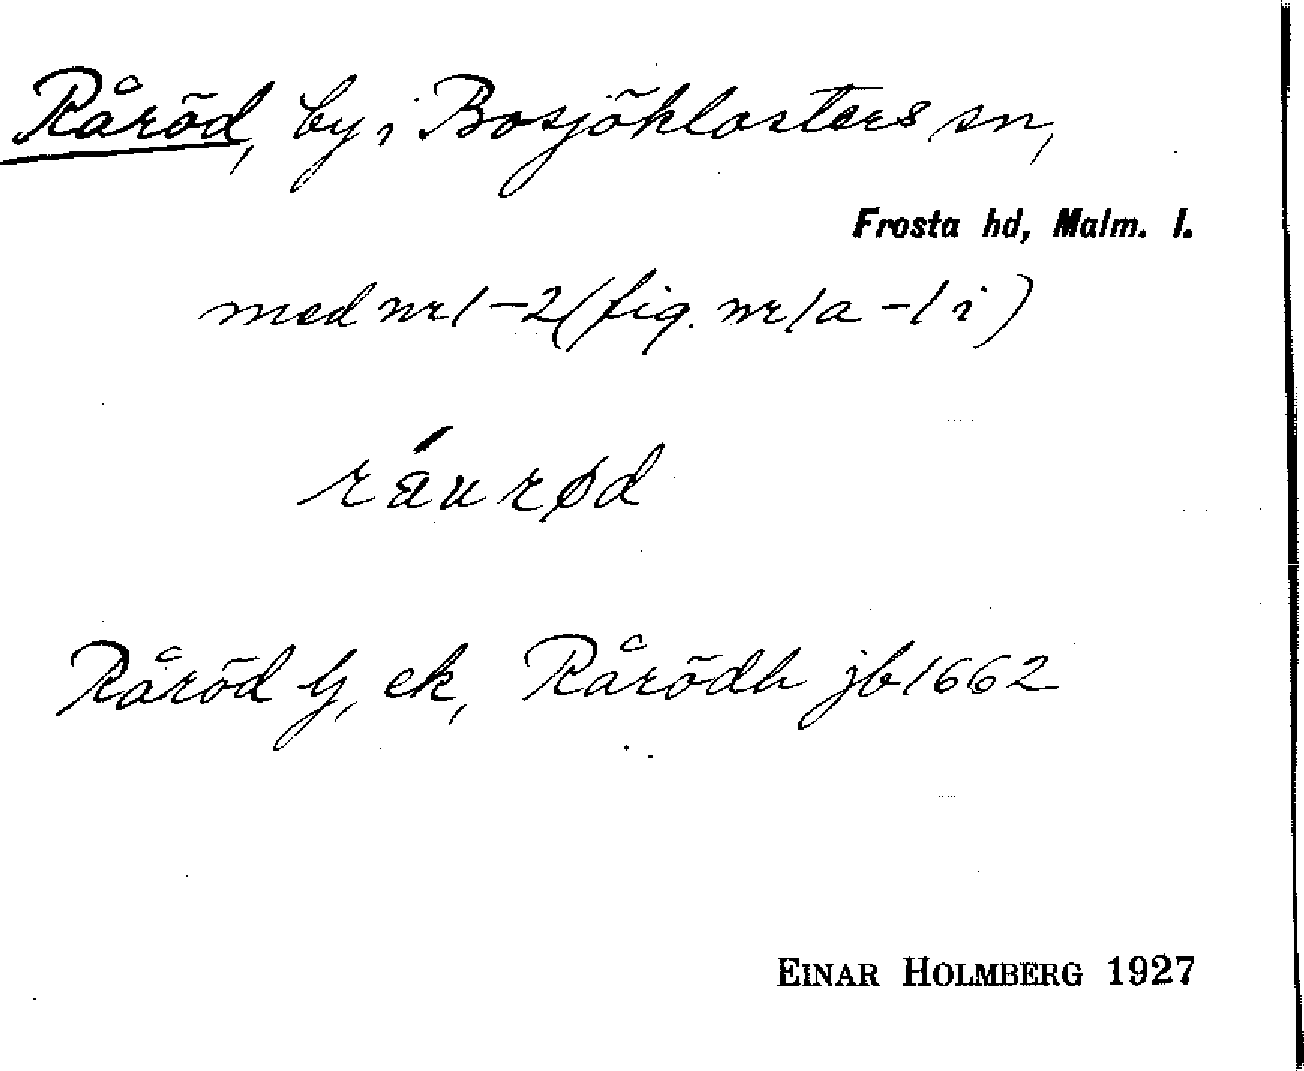 Råröd, by, i Bosjöklosters sn,
Frosta hd, Malm. l.
med nr 1-2 (fig. nr 1a - 1i)
ráurød
Råröd G, ek, Rårödh jb 1662
EINAR HOLMBERG 1927